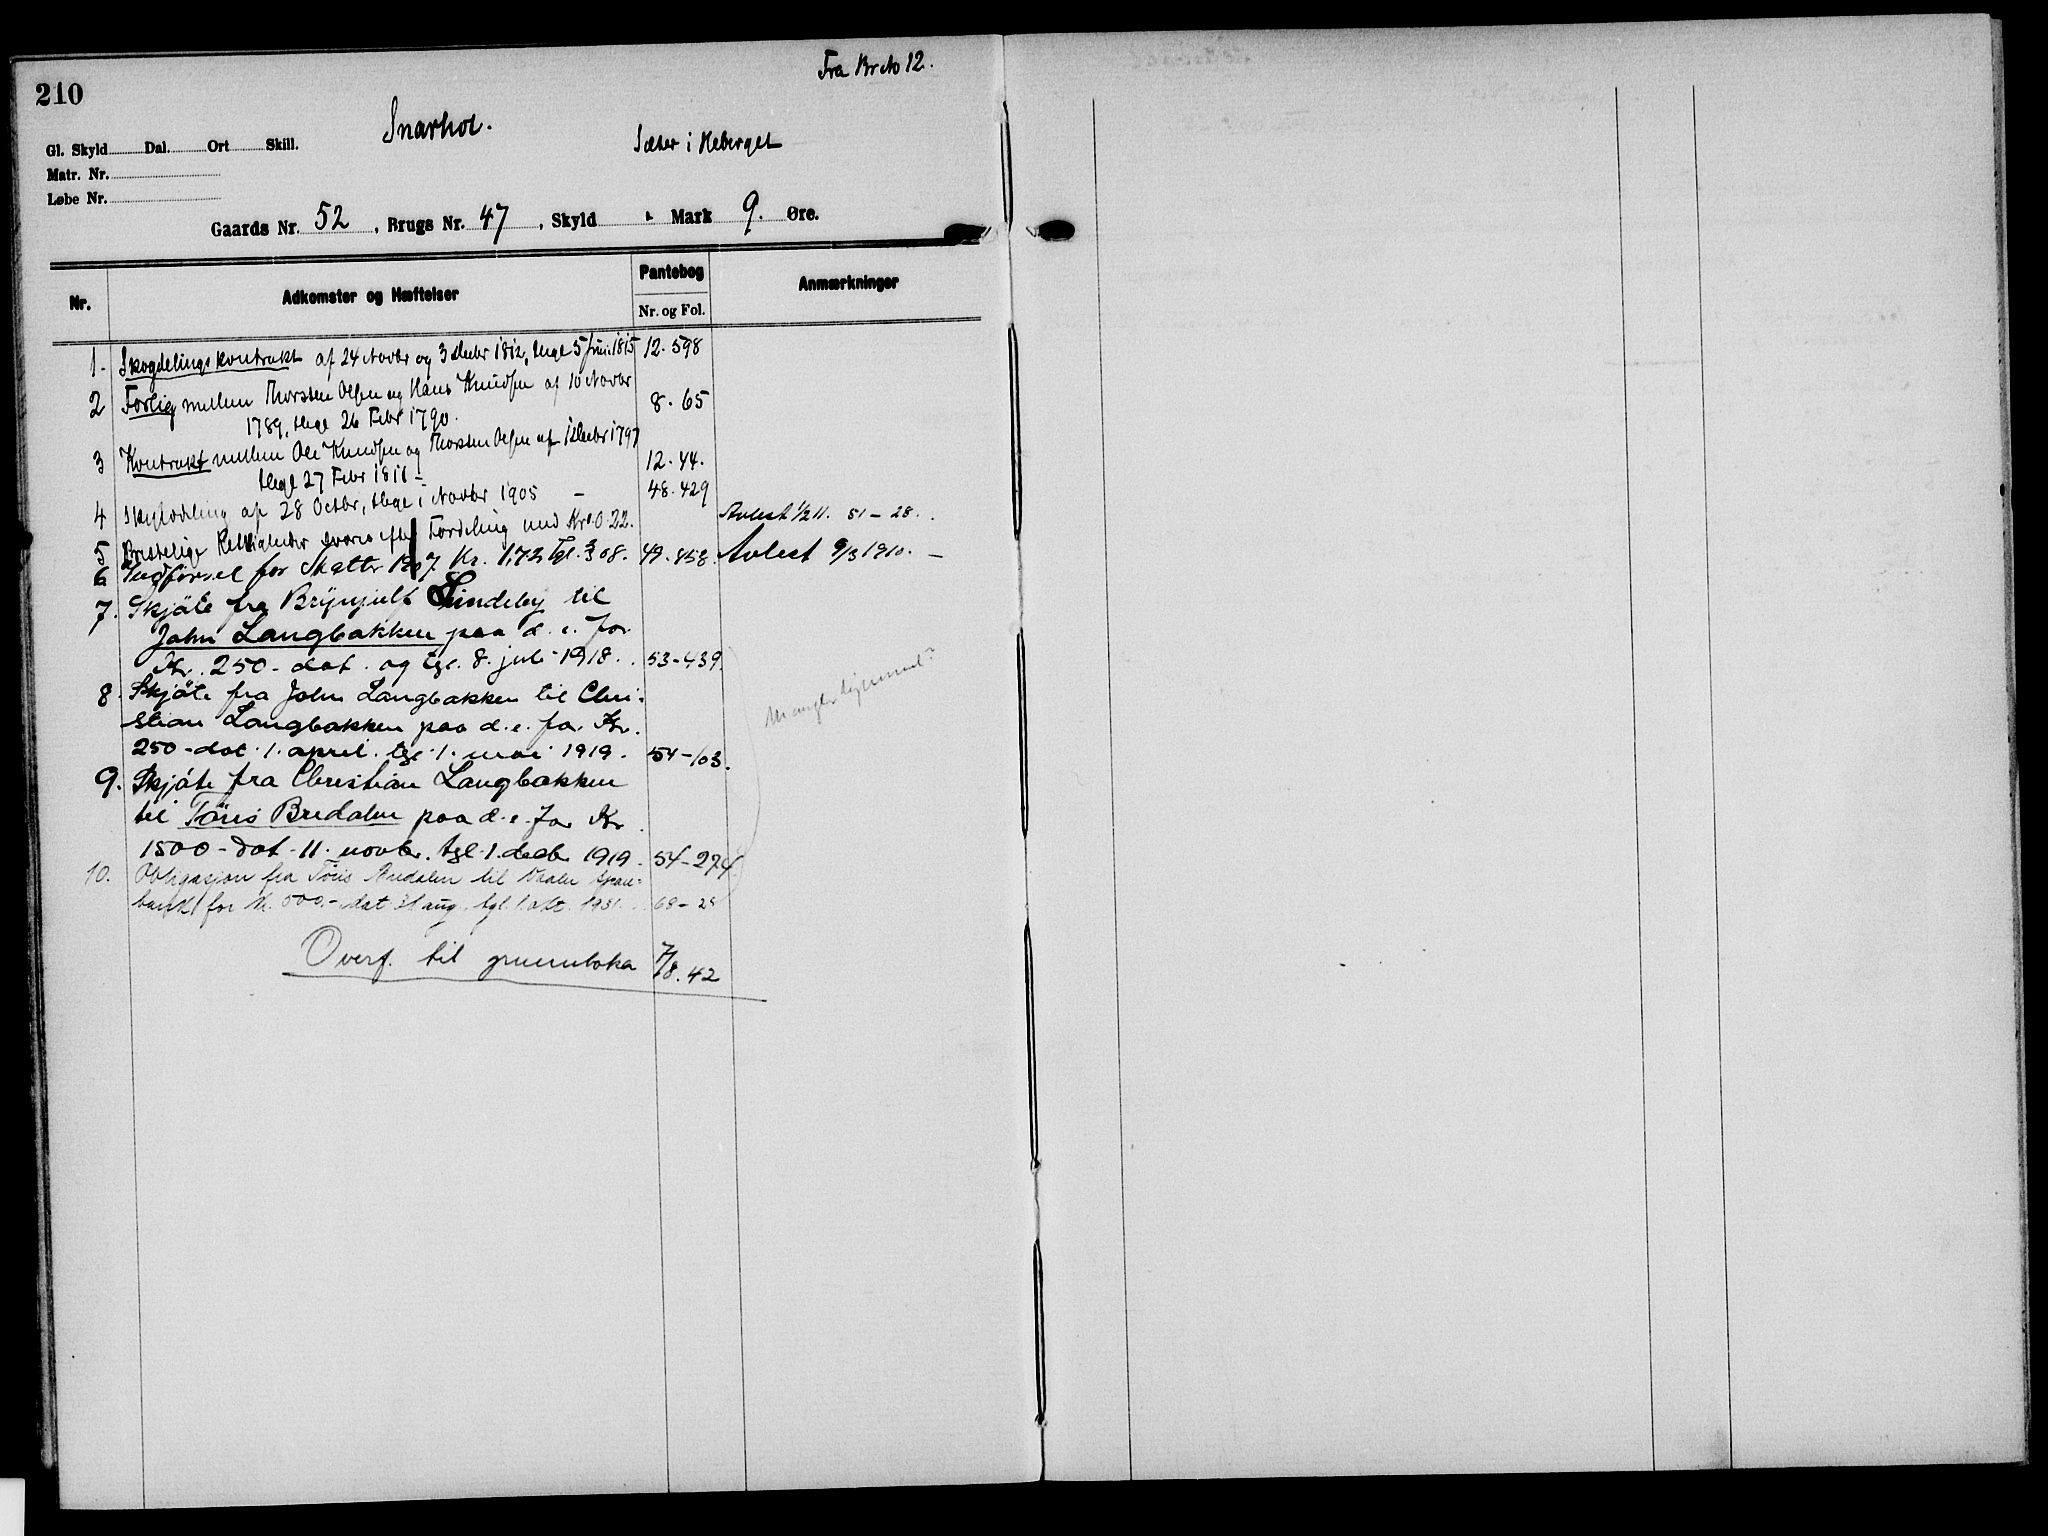 Fra Br No 12.
210
Snarhol.
Gl. Skyld Dal. Ort Skill.
Sæter i Heberget
Matr. Nr.
Løbe Nr.
Gaards Nr. 52, Brugs Nr. 47, Skyld Mark 9. Øre.
Nr. Adkomster og Hæftelser Pantebog Nr. og Fol. Anmærkninger
1. Skogdelingskontrakt af 24 Novbr og 3 Decbr 1812, thgl 5 Juni 1815 12.598
2 Forlig mellem Thorsten Olsen og Hans Knudsen af 10 Novbr
1789, thgl 26 Febr 1790. 8.65
3 Kontrakt mellem Ole Knudsen og Thorsten Olsen af 1 Decbr 1797
thgl 27 Febr 1811 - 12.44.
4 Skylddeling af 28 Octbr, thgl 1 Novbr 1905 - 48.429
5 svares efter Fordeling med Kr. 0.22. Avlest 1/2 11. 51-28.
6 Tugførsel for Skatter 1907 Kr. 1,72 Tgl. 3/3 08. 49.458. Avlest 9/3 1910. -
7. Skjöte fra Brynjulf Lindeby til
John Langbakken paa d. e. for
Kr. 250- dat. og tgl. 8. juli 1918. 53-439.
8. Skjöte fra John Langbakken til Chri-
stian Langbakken paa d. e. for Kr.
250- dat. 1. april. tgl. 1. mai 1919. 54-103.
mangler
9. Skjöte fra Christian Langbakken
til Töris Bredalen paa d. e. for Kr
1500- dat. 11. novbr. tgl. 1. decbr 1919. 54-274
10. Obligasjon fra Töris Bredalen til Spare-
bank for kr. 500.- dat 31 aug. tgl. 1. okt. 1931. 68-25
Overf. til grunnboka 7/8.42